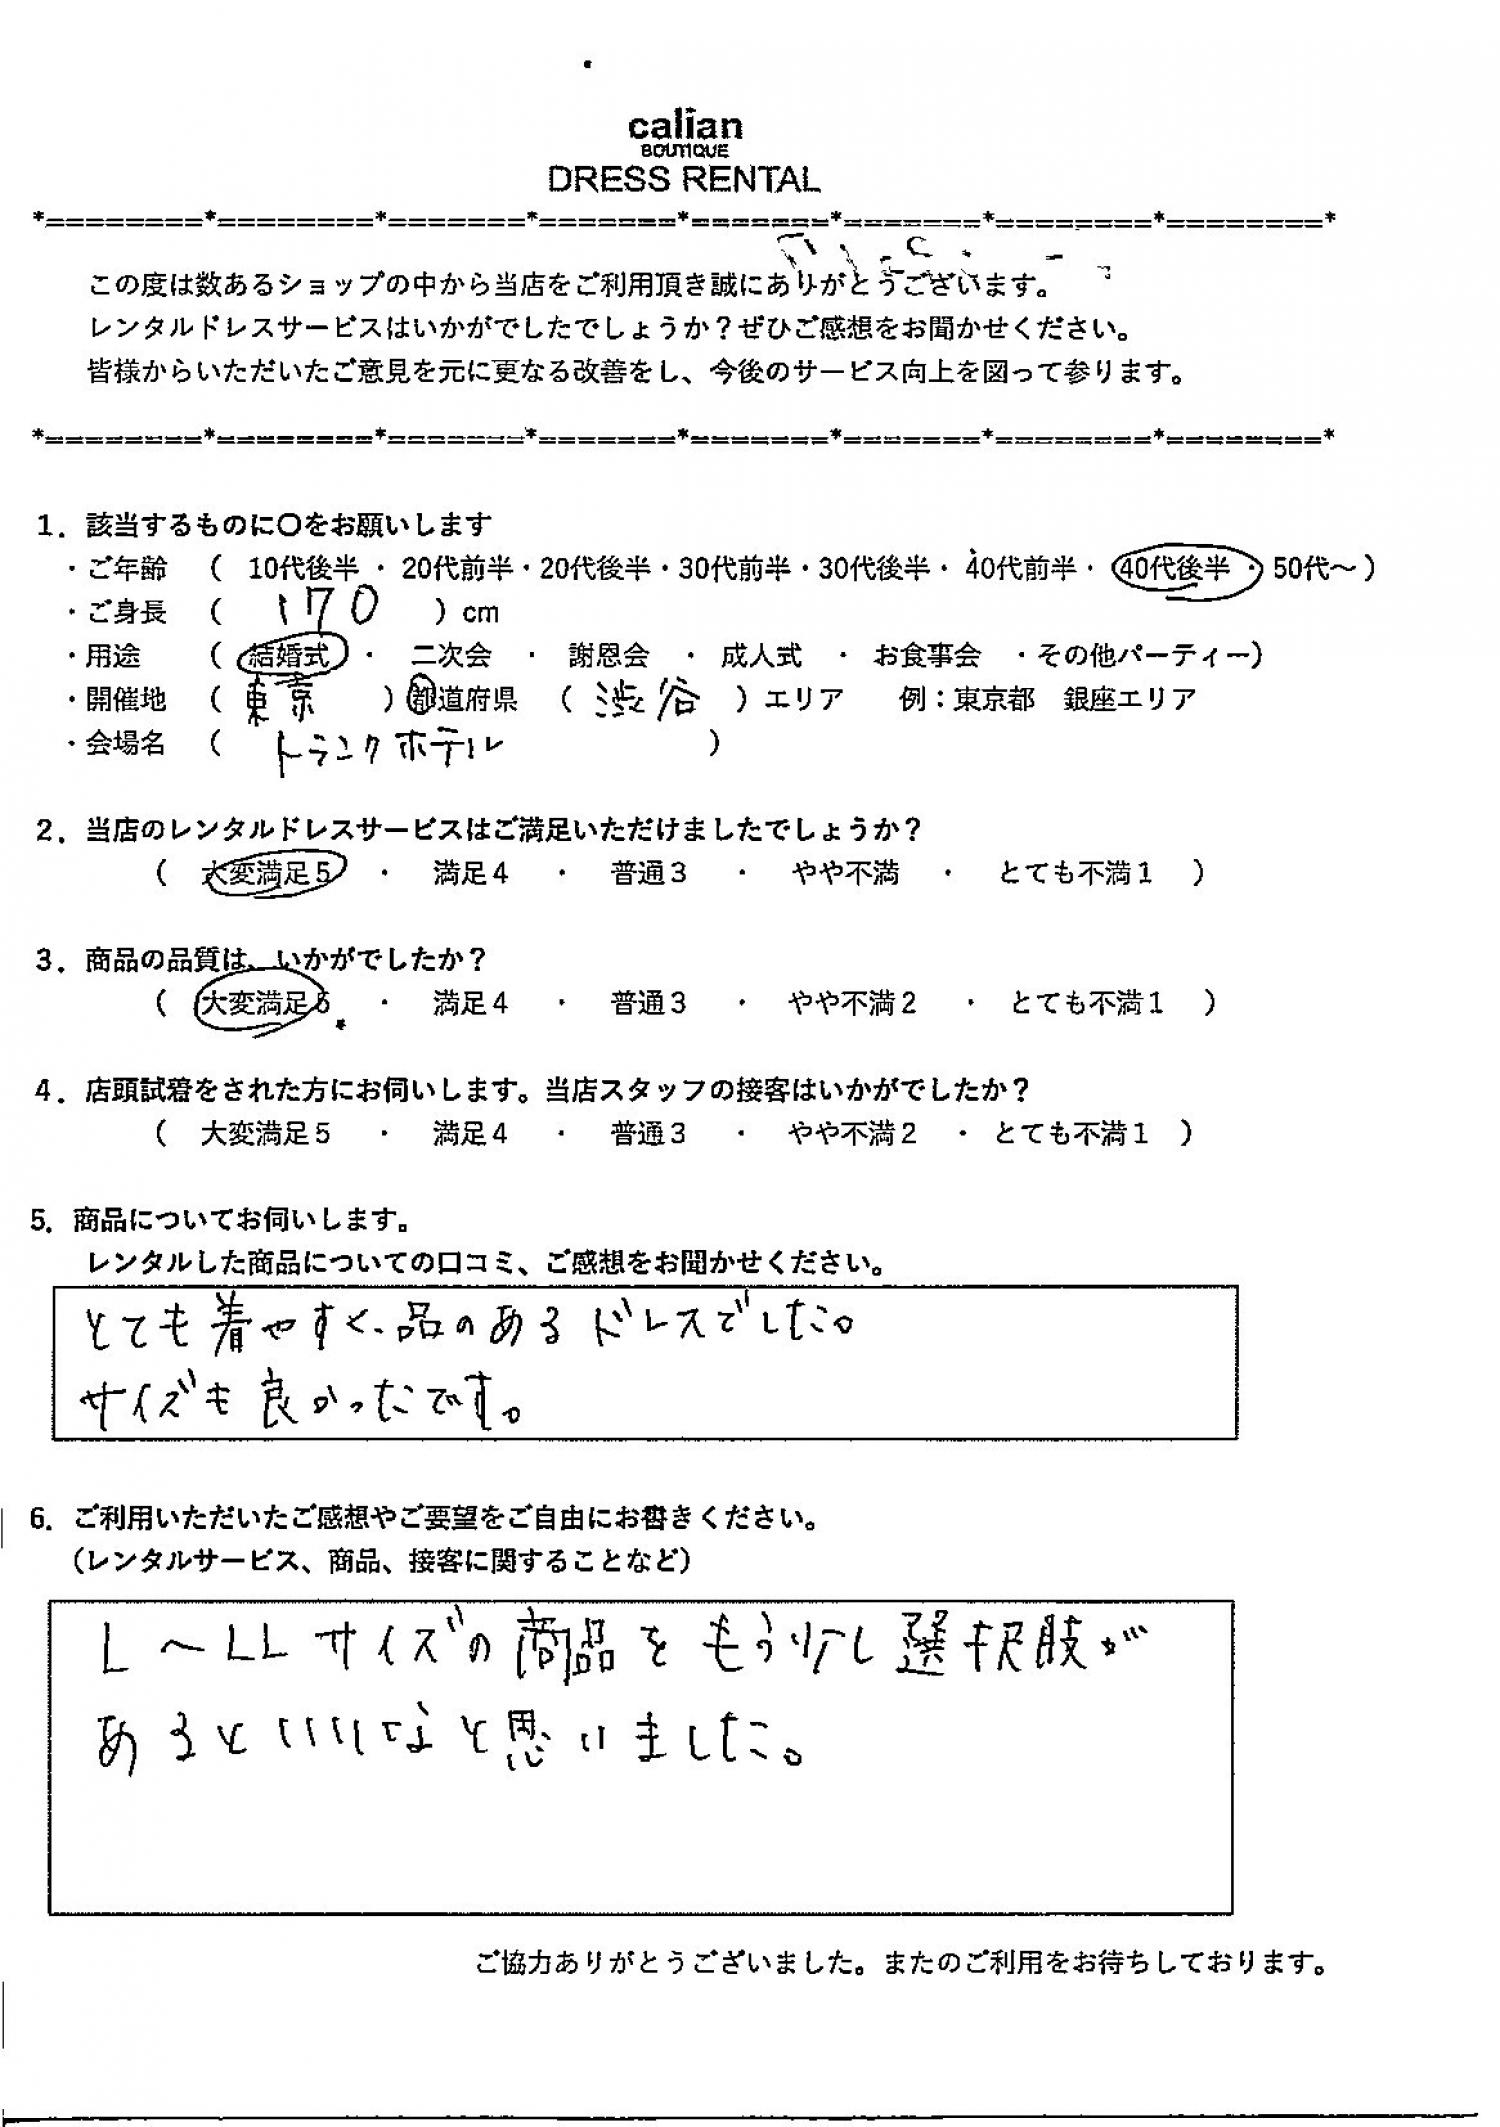 calian
BOUTIQUE
DRESS RENTAL
*========*========*=======*=======*=======*=======*========*========*
この度は数あるショップの中から当店をご利用頂き誠にありがとうございます。
レンタルドレスサービスはいかがでしたでしょうか？ぜひご感想をお聞かせください。
皆様からいただいたご意見を元に更なる改善をし、今後のサービス向上を図って参ります。
*========*========*=======*=======*=======*=======*========*========*
1．該当するものに〇をお願いします
・ご年齢 （ 10代後半・20代前半・20代後半・30代前半・30代後半・40代前半・40代後半・50代～）
・ご身長 （ 170 ）cm
・用途 （ 結婚式 ・ 二次会 ・ 謝恩会 ・ 成人式 ・ お食事会 ・その他パーティー）
・開催地 （ 東京 ）都道府県 （ 渋谷 ）エリア 例：東京都 銀座エリア
・会場名 （ トランクホテル ）
2．当店のレンタルドレスサービスはご満足いただけましたでしょうか？
（ 大変満足５ ・ 満足４ ・ 普通３ ・ やや不満 ・ とても不満１ ）
3．商品の品質は、いかがでしたか？
（ 大変満足５ ・ 満足４ ・ 普通３ ・ やや不満２ ・ とても不満１ ）
4．店頭試着をされた方にお伺いします。当店スタッフの接客はいかがでしたか？
（ 大変満足５ ・ 満足４ ・ 普通３ ・ やや不満２ ・ とても不満１ ）
5．商品についてお伺いします。
レンタルした商品についての口コミ、ご感想をお聞かせください。
とても着やすく、品のあるドレスでした。
サイズも良かったです。
6．ご利用いただいたご感想やご要望をご自由にお書きください。
（レンタルサービス、商品、接客に関することなど）
L～LLサイズの商品をもう少し選択肢が
あるといいなと思いました。
ご協力ありがとうございました。またのご利用をお待ちしております。